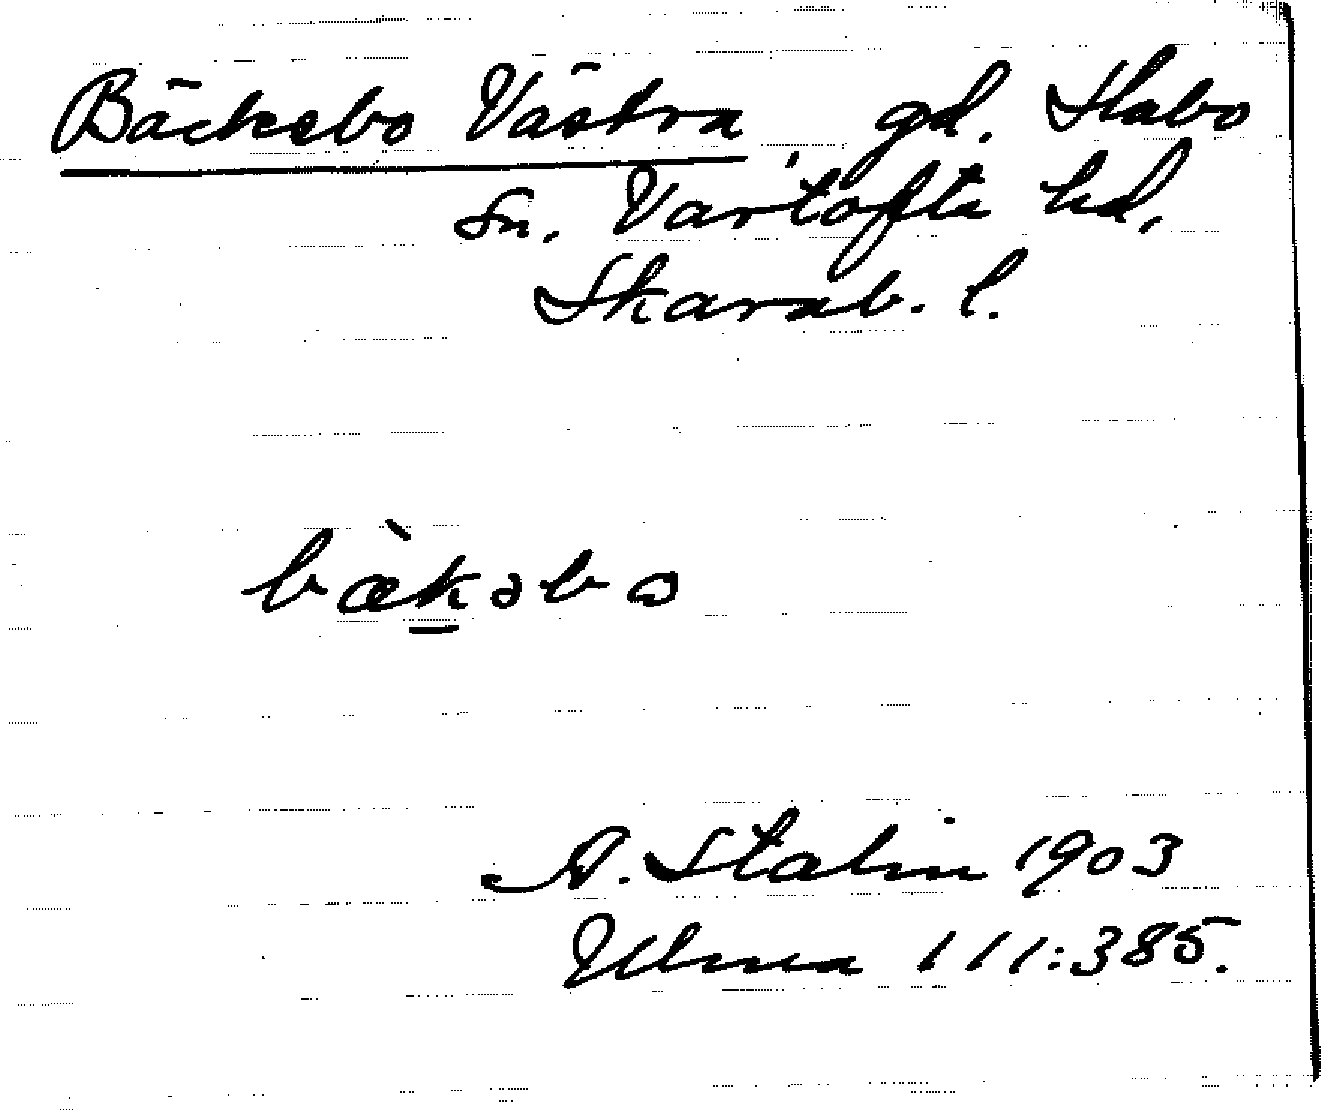 Bäckebo Västra, gd. Habo
sn. Vartofta hd,
Skarab. l.
bæ̀kəbo
A. Stalin 1903
Ulma 111:385.